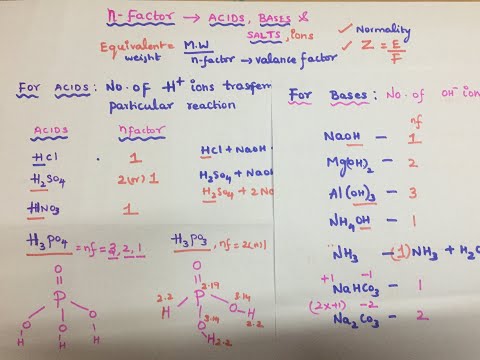 n-FACTOR → ACIDS, BASES &
SALTS, ions
Equivalent weight = M.W
n-factor → valance factor
✓ Normality
✓ Z = E/F
FOR ACIDS: No. of H⁺ ions trasfern
particular reaction
ACIDS nfactor
HCl · 1
H₂SO₄ 2(or) 1
HNO₃ 1
H₃PO₄ = nf = 3, 2, 1
HCl + NaOH
H₂SO₄ + NaOH
H₂SO₄ + 2Na
H₃PO₃, nf = 2(or)1
O
P
O O O
H H H
O
2.19
2.2 H P O 3.14
H 2.2
3.14 O
H 2.2
FOR Bases: No. of OH⁻ ions
nf
NaOH — 1
Mg(OH)₂ — 2
Al(OH)₃ — 3
NH₄OH — 1
NH₃ — (1) NH₃ + H₂O
+1 -1
NaHCO₃ — 1
(2x+1) -2
Na₂CO₃ — 2